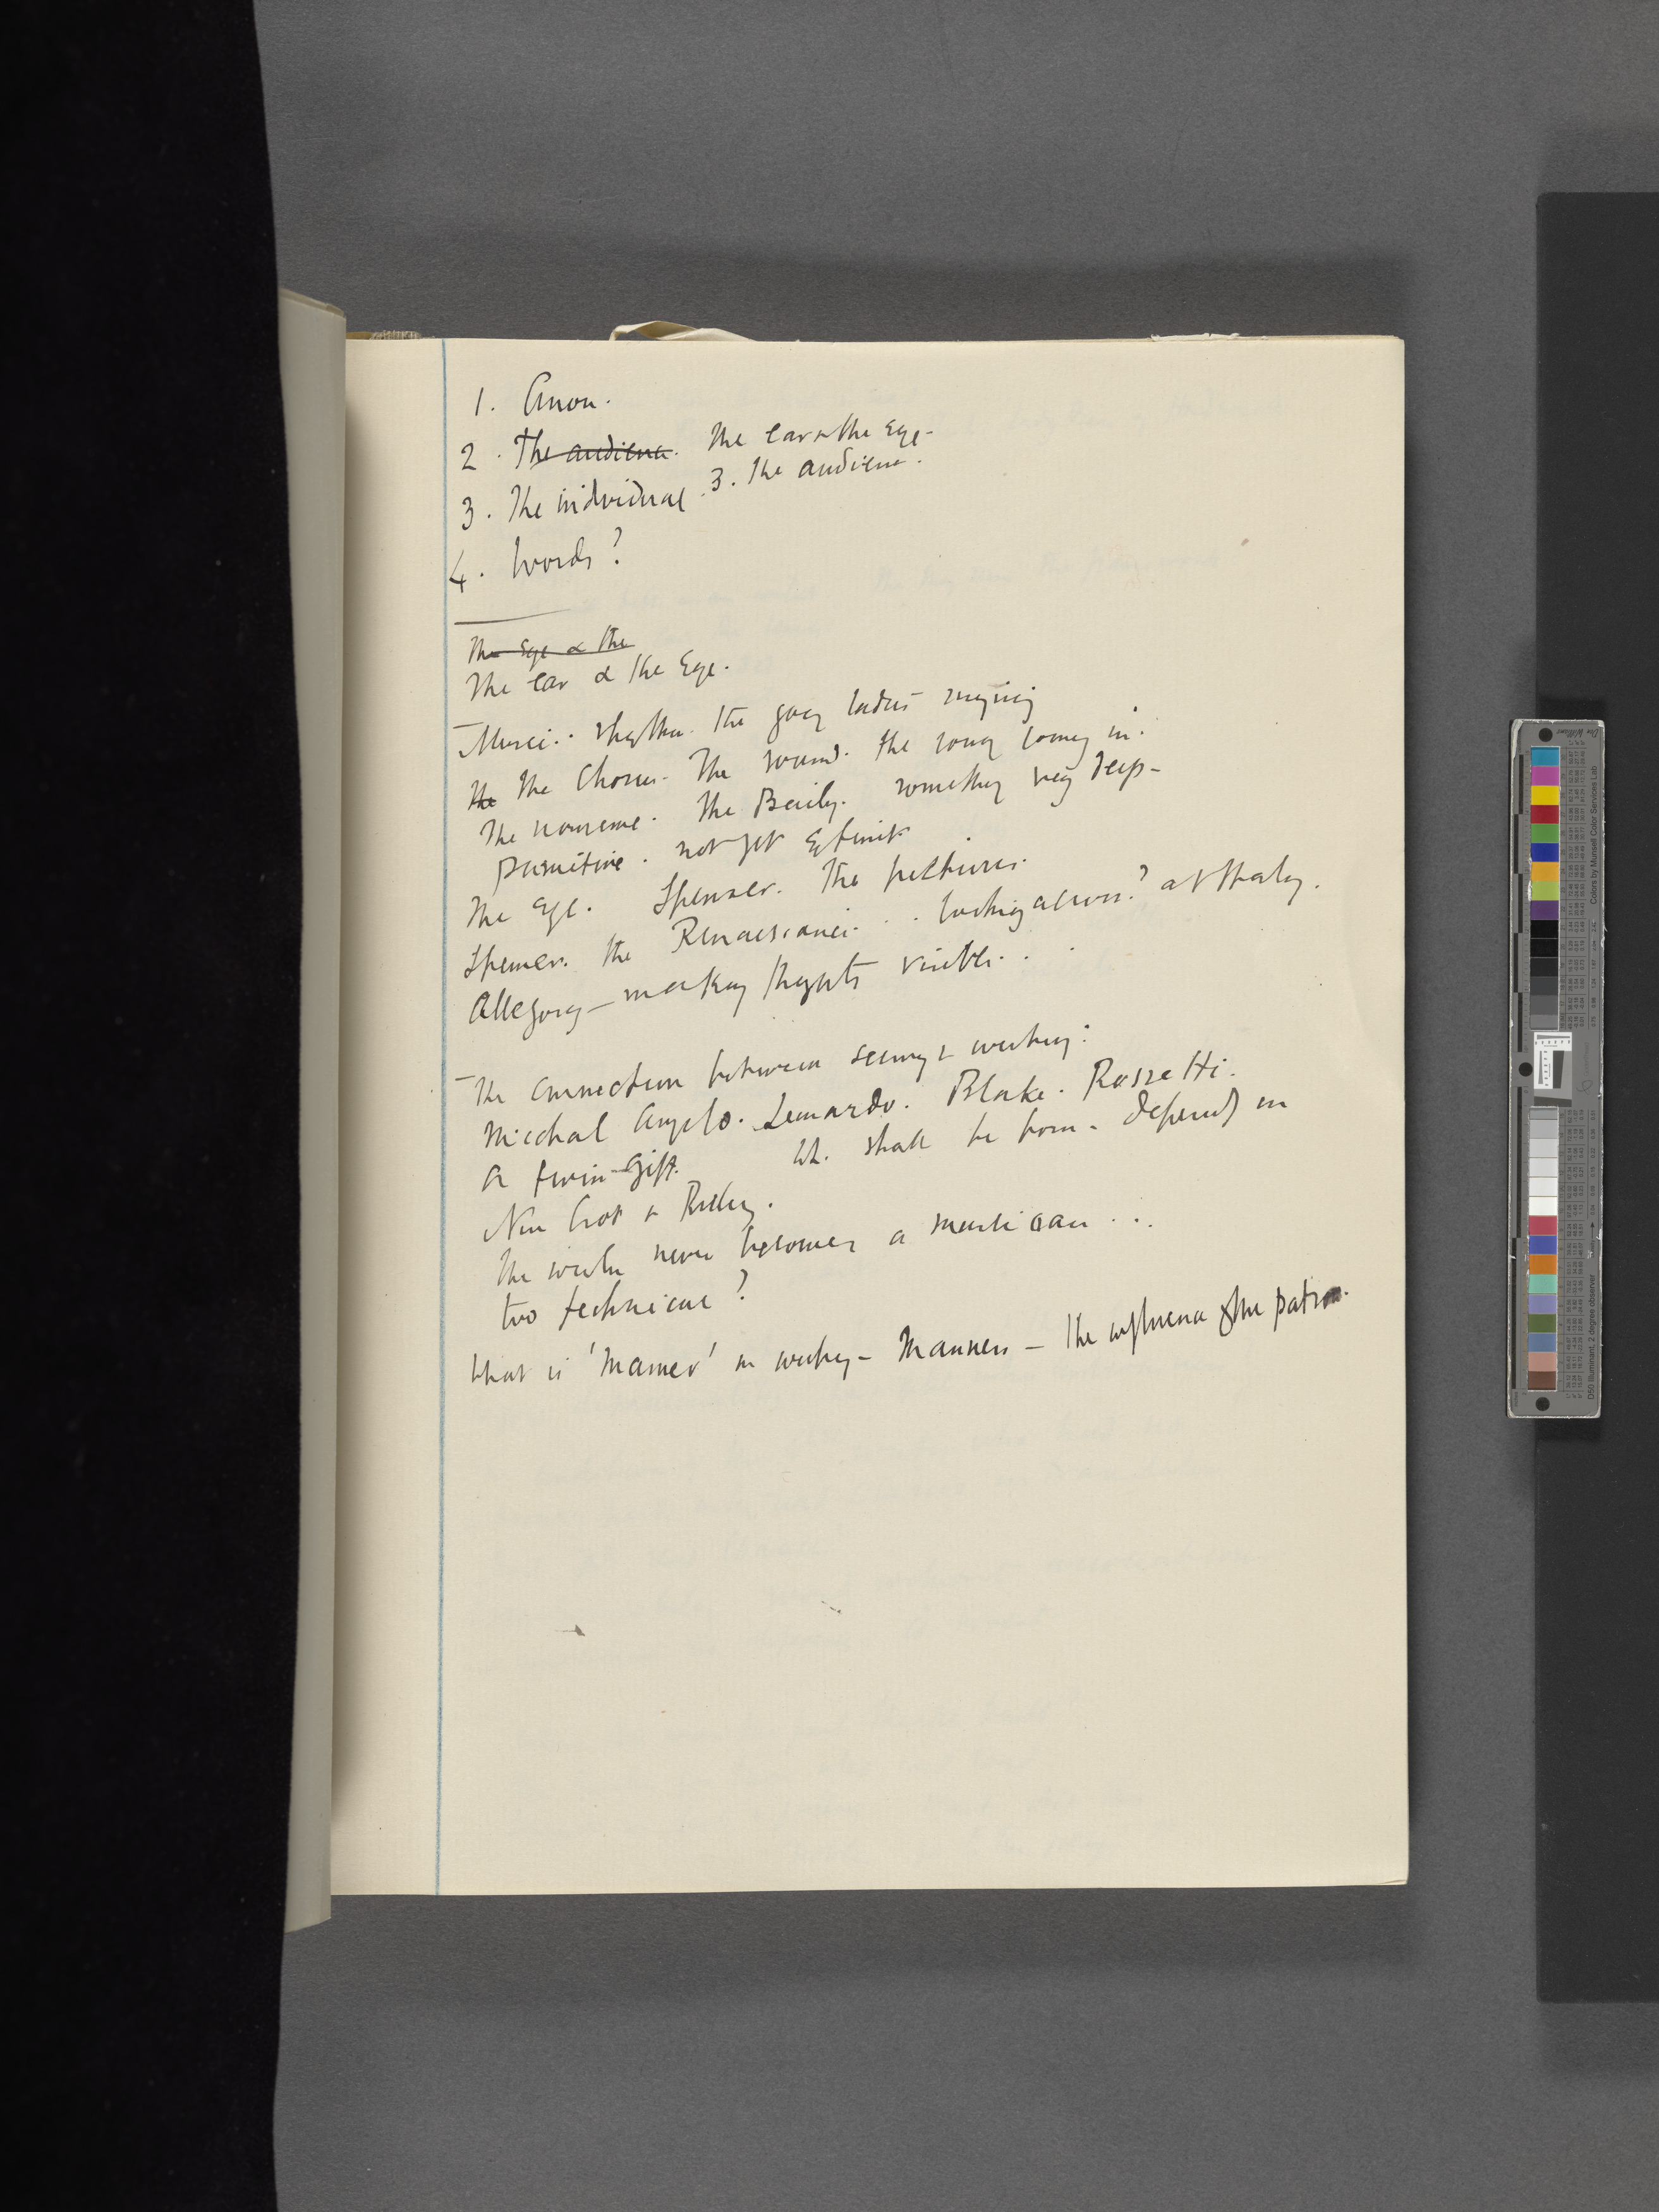 1. Anon.
2. The audience. The ear & the Eye-
3. The individual. 3. The audience.
4. Words?
The Eye & the
The Ear & the Eye.
Music. rhythm. the gay ladies singing
the The Chorus. The sound. the song coming in.
The nonsense. The Beauty. something very deep-
primitive. not yet extinct
The Eye. Spenser. The pictures.
Spenser. the Renaissance. . . looking across? at Italy.
Allegory- making thoughts visible. . .
The connection between seeing & writing:
Micchal Angelo. Leonardo. Blake. Rossetti.
a twin-gift. Wh. shall be born- depends on
Nin Crot & Pully.
The writer never becomes a musician ...
too technical?
What is 'manner' in writing- Manners - the influence of the patron.